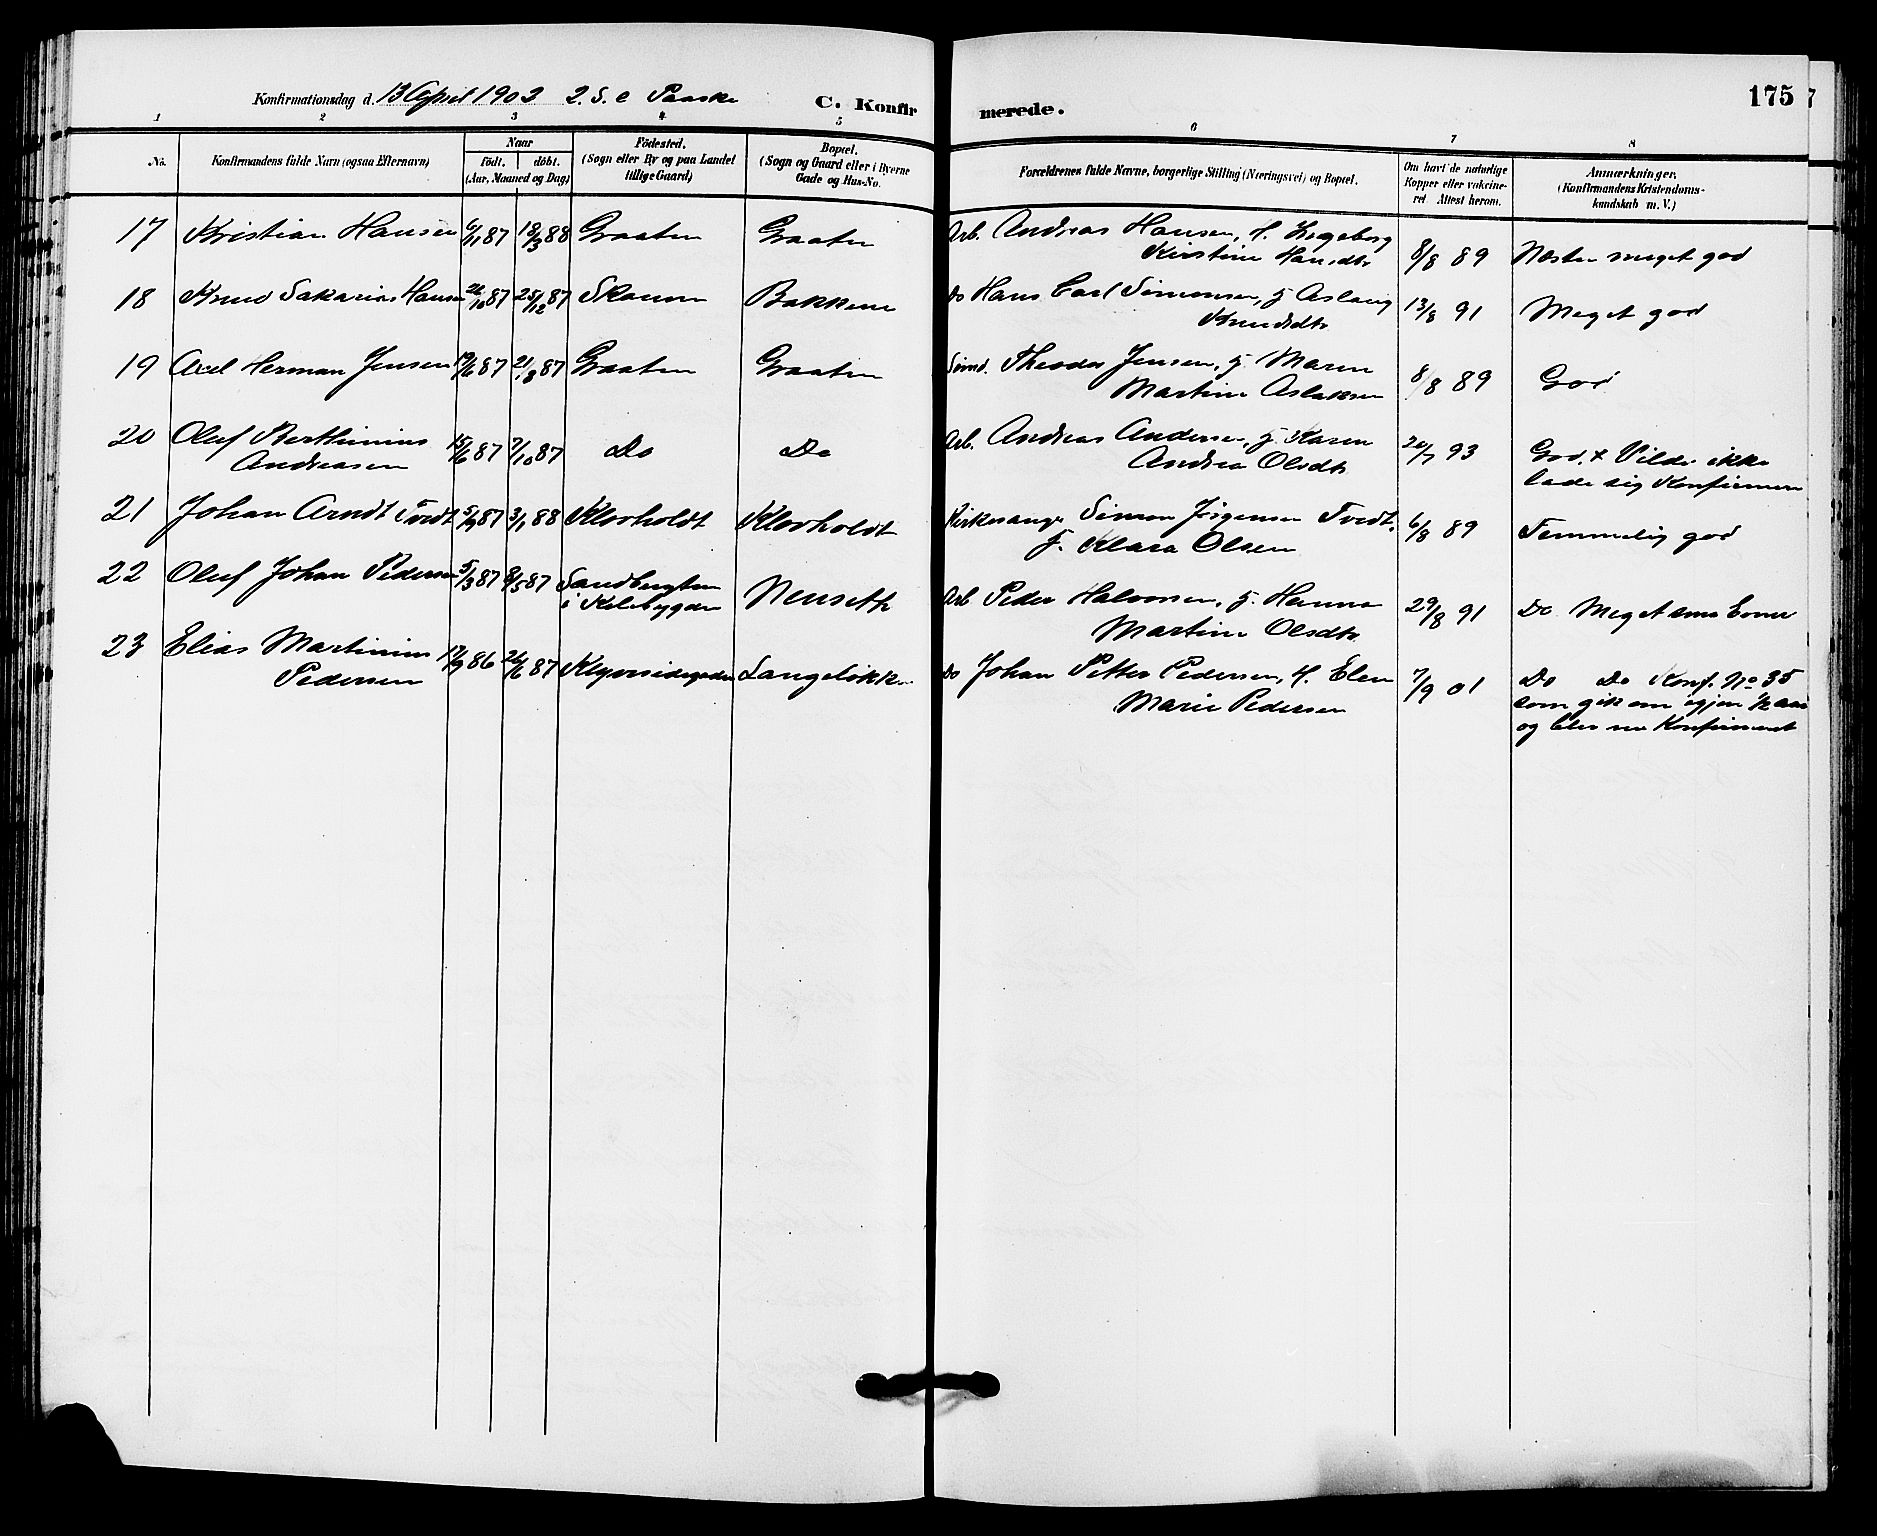 Konfirmationsdag d. 13 April 1902 2. S. e Paaske C. Konfirmerede. 175
1 2 3 4 5 6 7 8
No. Konfirmandens fulde Navn (ogsaa Efternavn) Naar födt. döbt. (Aar, Maaned og Dag) Födested. (Sogn eller By og paa Landet tillige Gaard) Bopæl. (Sogn og Gaard eller i Byerne Gade og Hus-No. Forældrenes fulde Navne, borgerlige Stilling (Næringsvei) og Bopæl. Om havt de naturlige Kopper eller vakcineret Attest herom. Anmærkninger. (Konfirmandens Kristendomskundskab m. V.)
17 Kristian Hansen 6/11 87 18/3 88 Graaten Graaten Arb. Andreas Hansen, H. Ingeborg
Kirstine Hansdtr 8/8 89 Næsten meget god
18 Knud Sakarias Hansen 26/10 87 25/12 87 Skauen Bakkene Do Hans Carl Simonsen, g Aslaug
Knudsdtr 13/8 91 Meget god
19 Axel Herman Jensen 19/6 87 21/8 87 Graaten Graaten Sömd. Theodor Jensen, g. Maren
Martine Aslaksen 8/8 89 God
20 Oluf Berthinius
Andreasen 15/6 87 7/10 87 Do Do Arb. Andreas Andersen, g. Karen
Andrea Olsdtr 20/7 93 God. + Vilde ikke
lade sig Konfirmere
21 Johan Arndt Tvedt 5/9 87 3/1 88 Klovholdt Klovholdt Kirkesanger Simon Jörgensen Tvedt,
g. Klara Olsen 6/8 89 Temmelig god
22 Oluf Johan Pedersen 5/3 87 8/5 87 Sandbugten
i Kilebygden Nenseth Arb Peder Halvorsen, g. Hanna
Martine Olsdtr 29/8 91 Do Meget smaa Evner
23 Elias Martinius
Pedersen 17/9 86 26/6 87 Langelökke Do Johan Petter Pedersen, H. Elen
Marie Pedersen 7/9 01 Do Do Konf. No 35
som gik om igjen 1/2 aar
og blev nu Konfirmeret